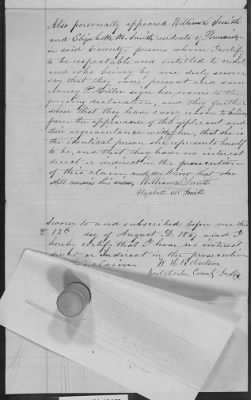 Also personally appeared William L Smith
and Elizabeth M. Smith residents of
in said County, persons whom I certify
to be respectable and entitled to credit
and who being by me duly sworn
say that they were present and saw
Nancy P. sign her name to the
foregoing declaration, and they further
swear that they have every reason to believe
from the appearance of the applicant and
their acquaintance with her, that she is
the identical person she represents herself
to be, and that they have no interest
direct or indirect in the prosecution
of this claim and we know that she
still remains his widow, William L Smith
Elizabeth M Smith
Sworn to and subscribed before me this
13th day of August A.D. 1861 and I
hereby certify that I have no interest
direct or indirect in the prosecution
claim.
W H Robertson
County Judge